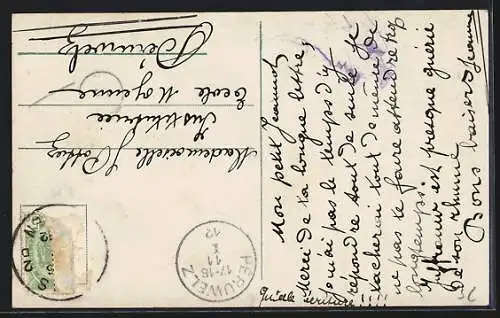 Mon petit Jeannot,
Merci de ta longue lettre,
je n'ai pas le temps d'y
répondre tout de suite. Je
tâcherai tout de même de
ne pas te faire attendre trop
longtemps.
est presque guérie
de son rhume
Bons baisers Jeanne
Quelle écriture!!!!
Mademoiselle J Pottiez
Institutrice
Ecole Moyenne
Péruwelz
PERUWELZ
17-18
X
11
12